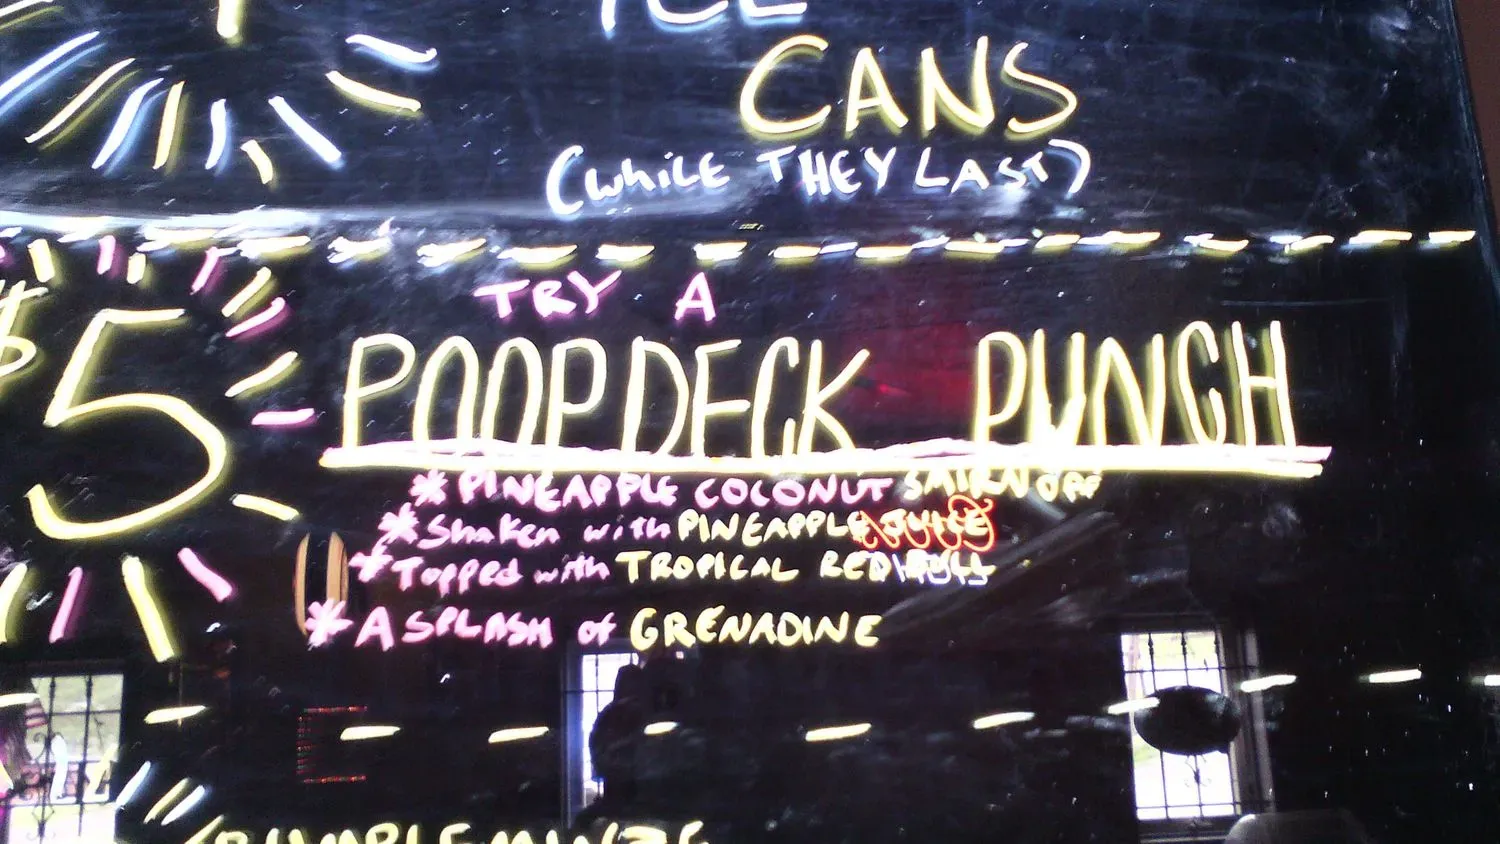 ICE
CANS
(WHILE THEY LAST)
TRY A
$5
POOPDECK PUNCH
* PINEAPPLE COCONUT SMIRNOFF
* Shaken with PINEAPPLE JUICE
* Topped with TROPICAL RED BULL
* A SPLASH of GRENADINE